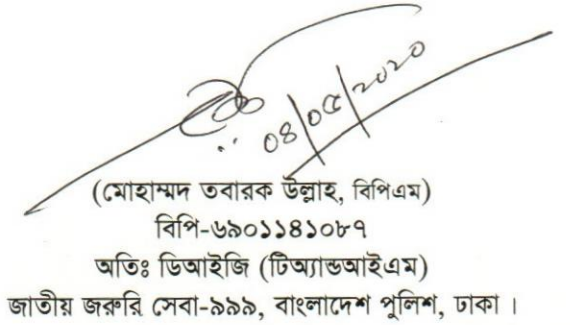 ০৪/০৫/২০২০
(মোহাম্মদ তবারক উল্লাহ, বিপিএম)
বিপি-৬৯০১১৪১০৮৭
অতিঃ ডিআইজি (টিঅ্যান্ডআইএম)
জাতীয় জরুরি সেবা-৯৯৯, বাংলাদেশ পুলিশ, ঢাকা ।